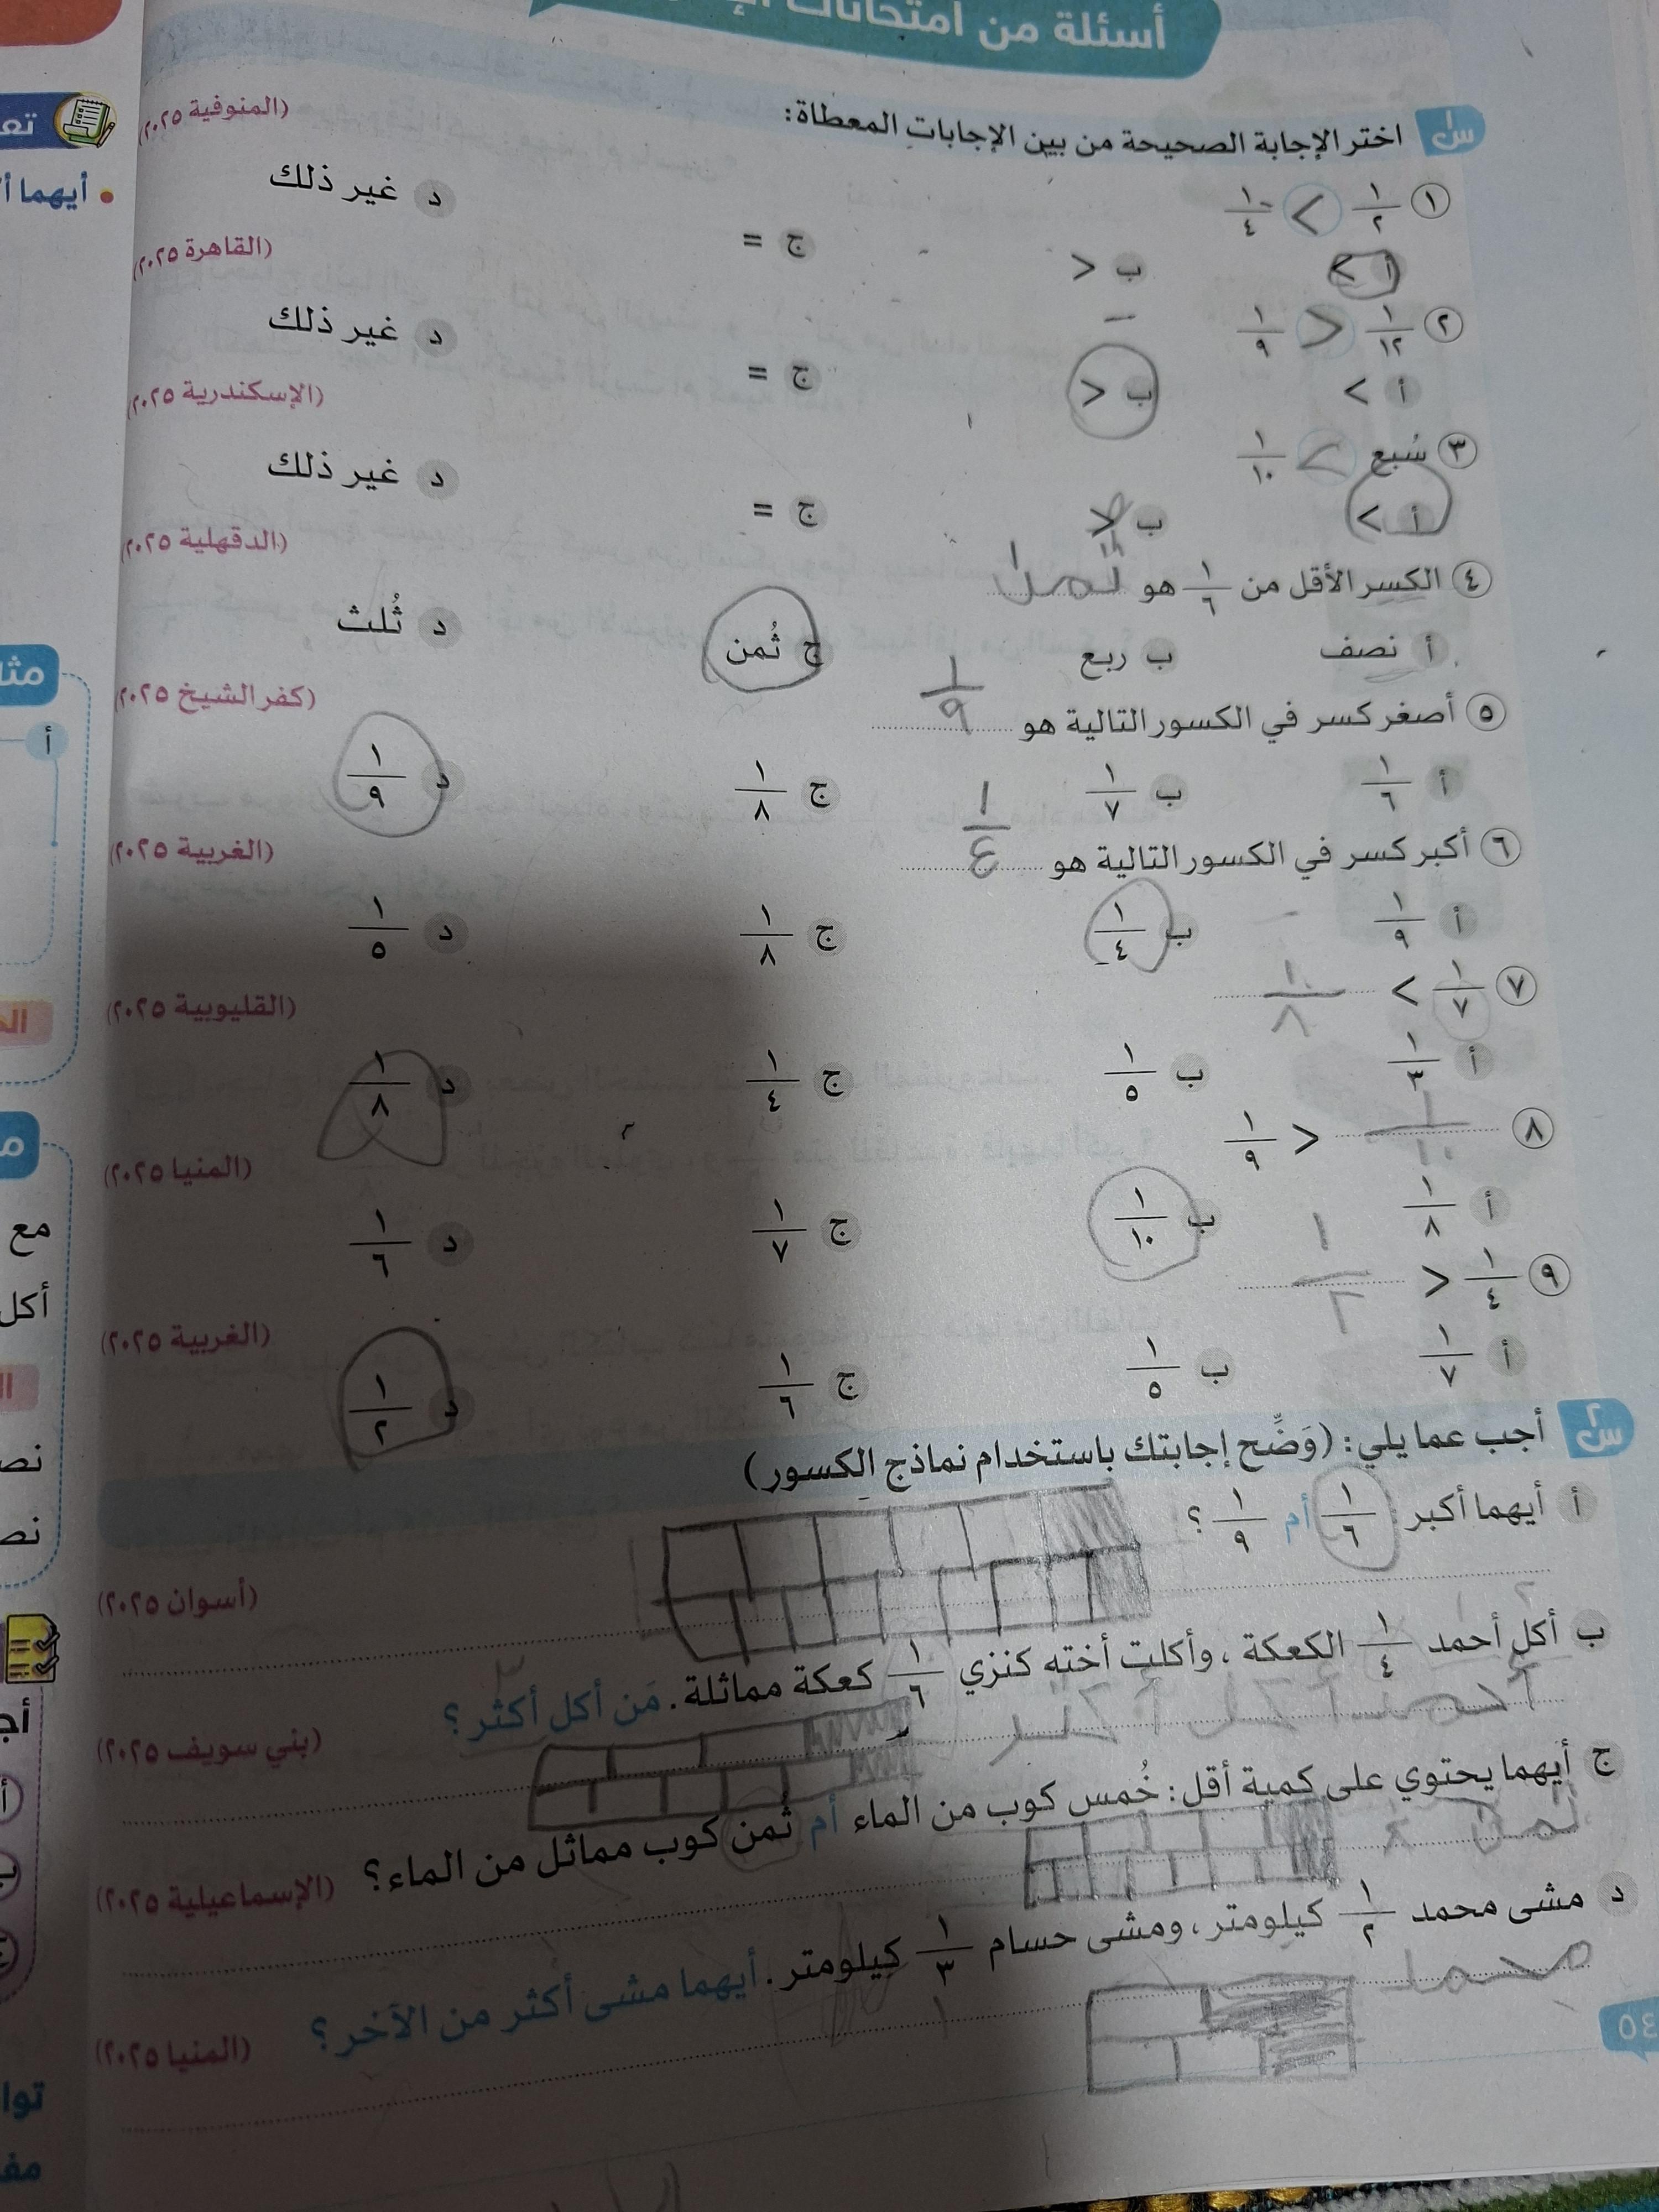 أسئلة من امتحانات
س١ اختر الإجابة الصحيحة من بين الإجابات المعطاة:
(المنوفية ٢٠٢٥)
١ ١/٢ < ١/٤
أ < ب > ج = د غير ذلك
(القاهرة ٢٠٢٥)
٢ ١/١٢ > ١/٩
أ < ب > ج = د غير ذلك
(الإسكندرية ٢٠٢٥)
٣ سُبع < ١/١٠
أ < ب > ج = د غير ذلك
(الدقهلية ٢٠٢٥)
٤ الكسر الأقل من ١/٦ هو ثمن
أ نصف ب ربع ج ثُمن د ثُلث
(كفر الشيخ ٢٠٢٥)
٥ أصغر كسر في الكسور التالية هو ١/٩
أ ١/٦ ب ١/٧ ج ١/٨ د ١/٩
(الغربية ٢٠٢٥)
٦ أكبر كسر في الكسور التالية هو ١/٤
أ ١/٩ ب ١/٤ ج ١/٨ د ١/٥
(القليوبية ٢٠٢٥)
٧ ١/٧ < ١/٨
أ ١/٣ ب ١/٥ ج ١/٤ د ١/٨
(المنيا ٢٠٢٥)
٨ ١/١٠ > ١/٩
أ ١/٨ ب ١/١٠ ج ١/٧ د ١/٦
(الغربية ٢٠٢٥)
٩ ١/٤ > ١/٢
أ ١/٧ ب ١/٥ ج ١/٦ د ١/٢
س٢ أجب عما يلي: (وَضِّح إجابتك باستخدام نماذج الكسور)
أ أيهما أكبر: ١/٦ أم ١/٩ ؟
(أسوان ٢٠٢٥)
ب أكل أحمد ١/٤ الكعكة، وأكلت أخته كنزي ١/٦ كعكة مماثلة. مَن أكل أكثر؟
أحمد أكل أكثر
(بني سويف ٢٠٢٥)
ج أيهما يحتوي على كمية أقل: خُمس كوب من الماء أم ثُمن كوب مماثل من الماء؟
ثمن
(الإسماعيلية ٢٠٢٥)
د مشى محمد ١/٢ كيلومتر، ومشى حسام ١/٣ كيلومتر. أيهما مشى أكثر من الآخر؟
محمد
(المنيا ٢٠٢٥)
تع
أيهما أ
مثا
أ
مع
أكل
نص
نص
أج
توا
مف